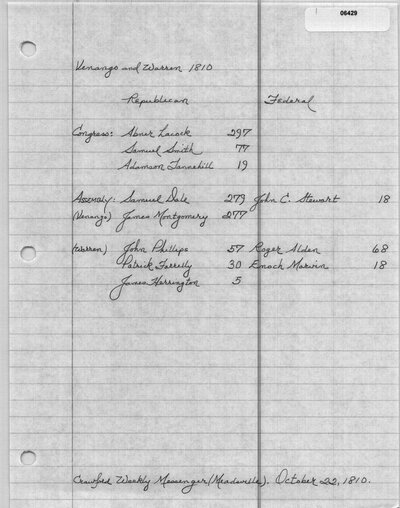 06429
Venango and Warren 1810
Republican Federal
Congress: Abner Lacock 297
Samuel Smith 77
Adamson Tannehill 19
Assembly: Samuel Dale 279 John C. Stewart 18
(Venango) James Montgomery 277
(Warren) John Phillips 57 Roger Alden 68
Patrick Farrelly 30 Enoch Marvin 18
James Herrington 5
Crawford Weekly Messenger (Meadville). October 22, 1810.